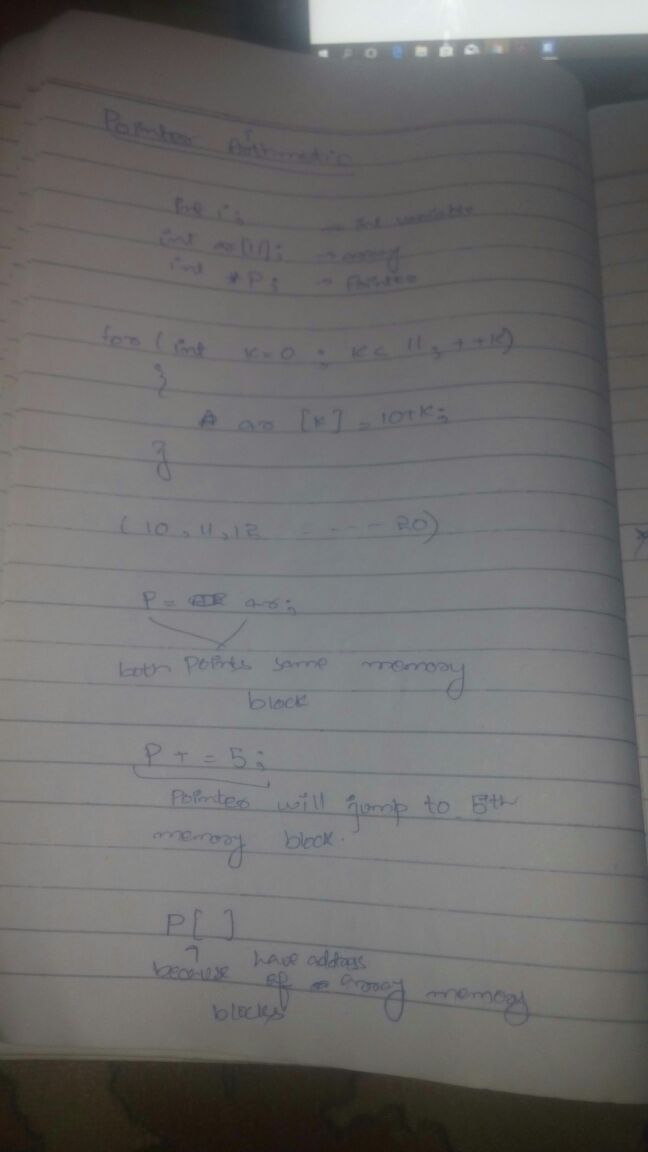 Pointer Arithmetic
int i; → int variable
int ar[11]; → array
int *P; → Pointer
for ( int K=0 ; K< 11; ++K)
{
ar [K] = 10+K;
}
( 10, 11, 12 - - - - 20)
P = ar;
both points same memory
block
P + = 5;
Pointer will jump to 5th
memory block.
P[ ]
because have address
of array memory
blocks